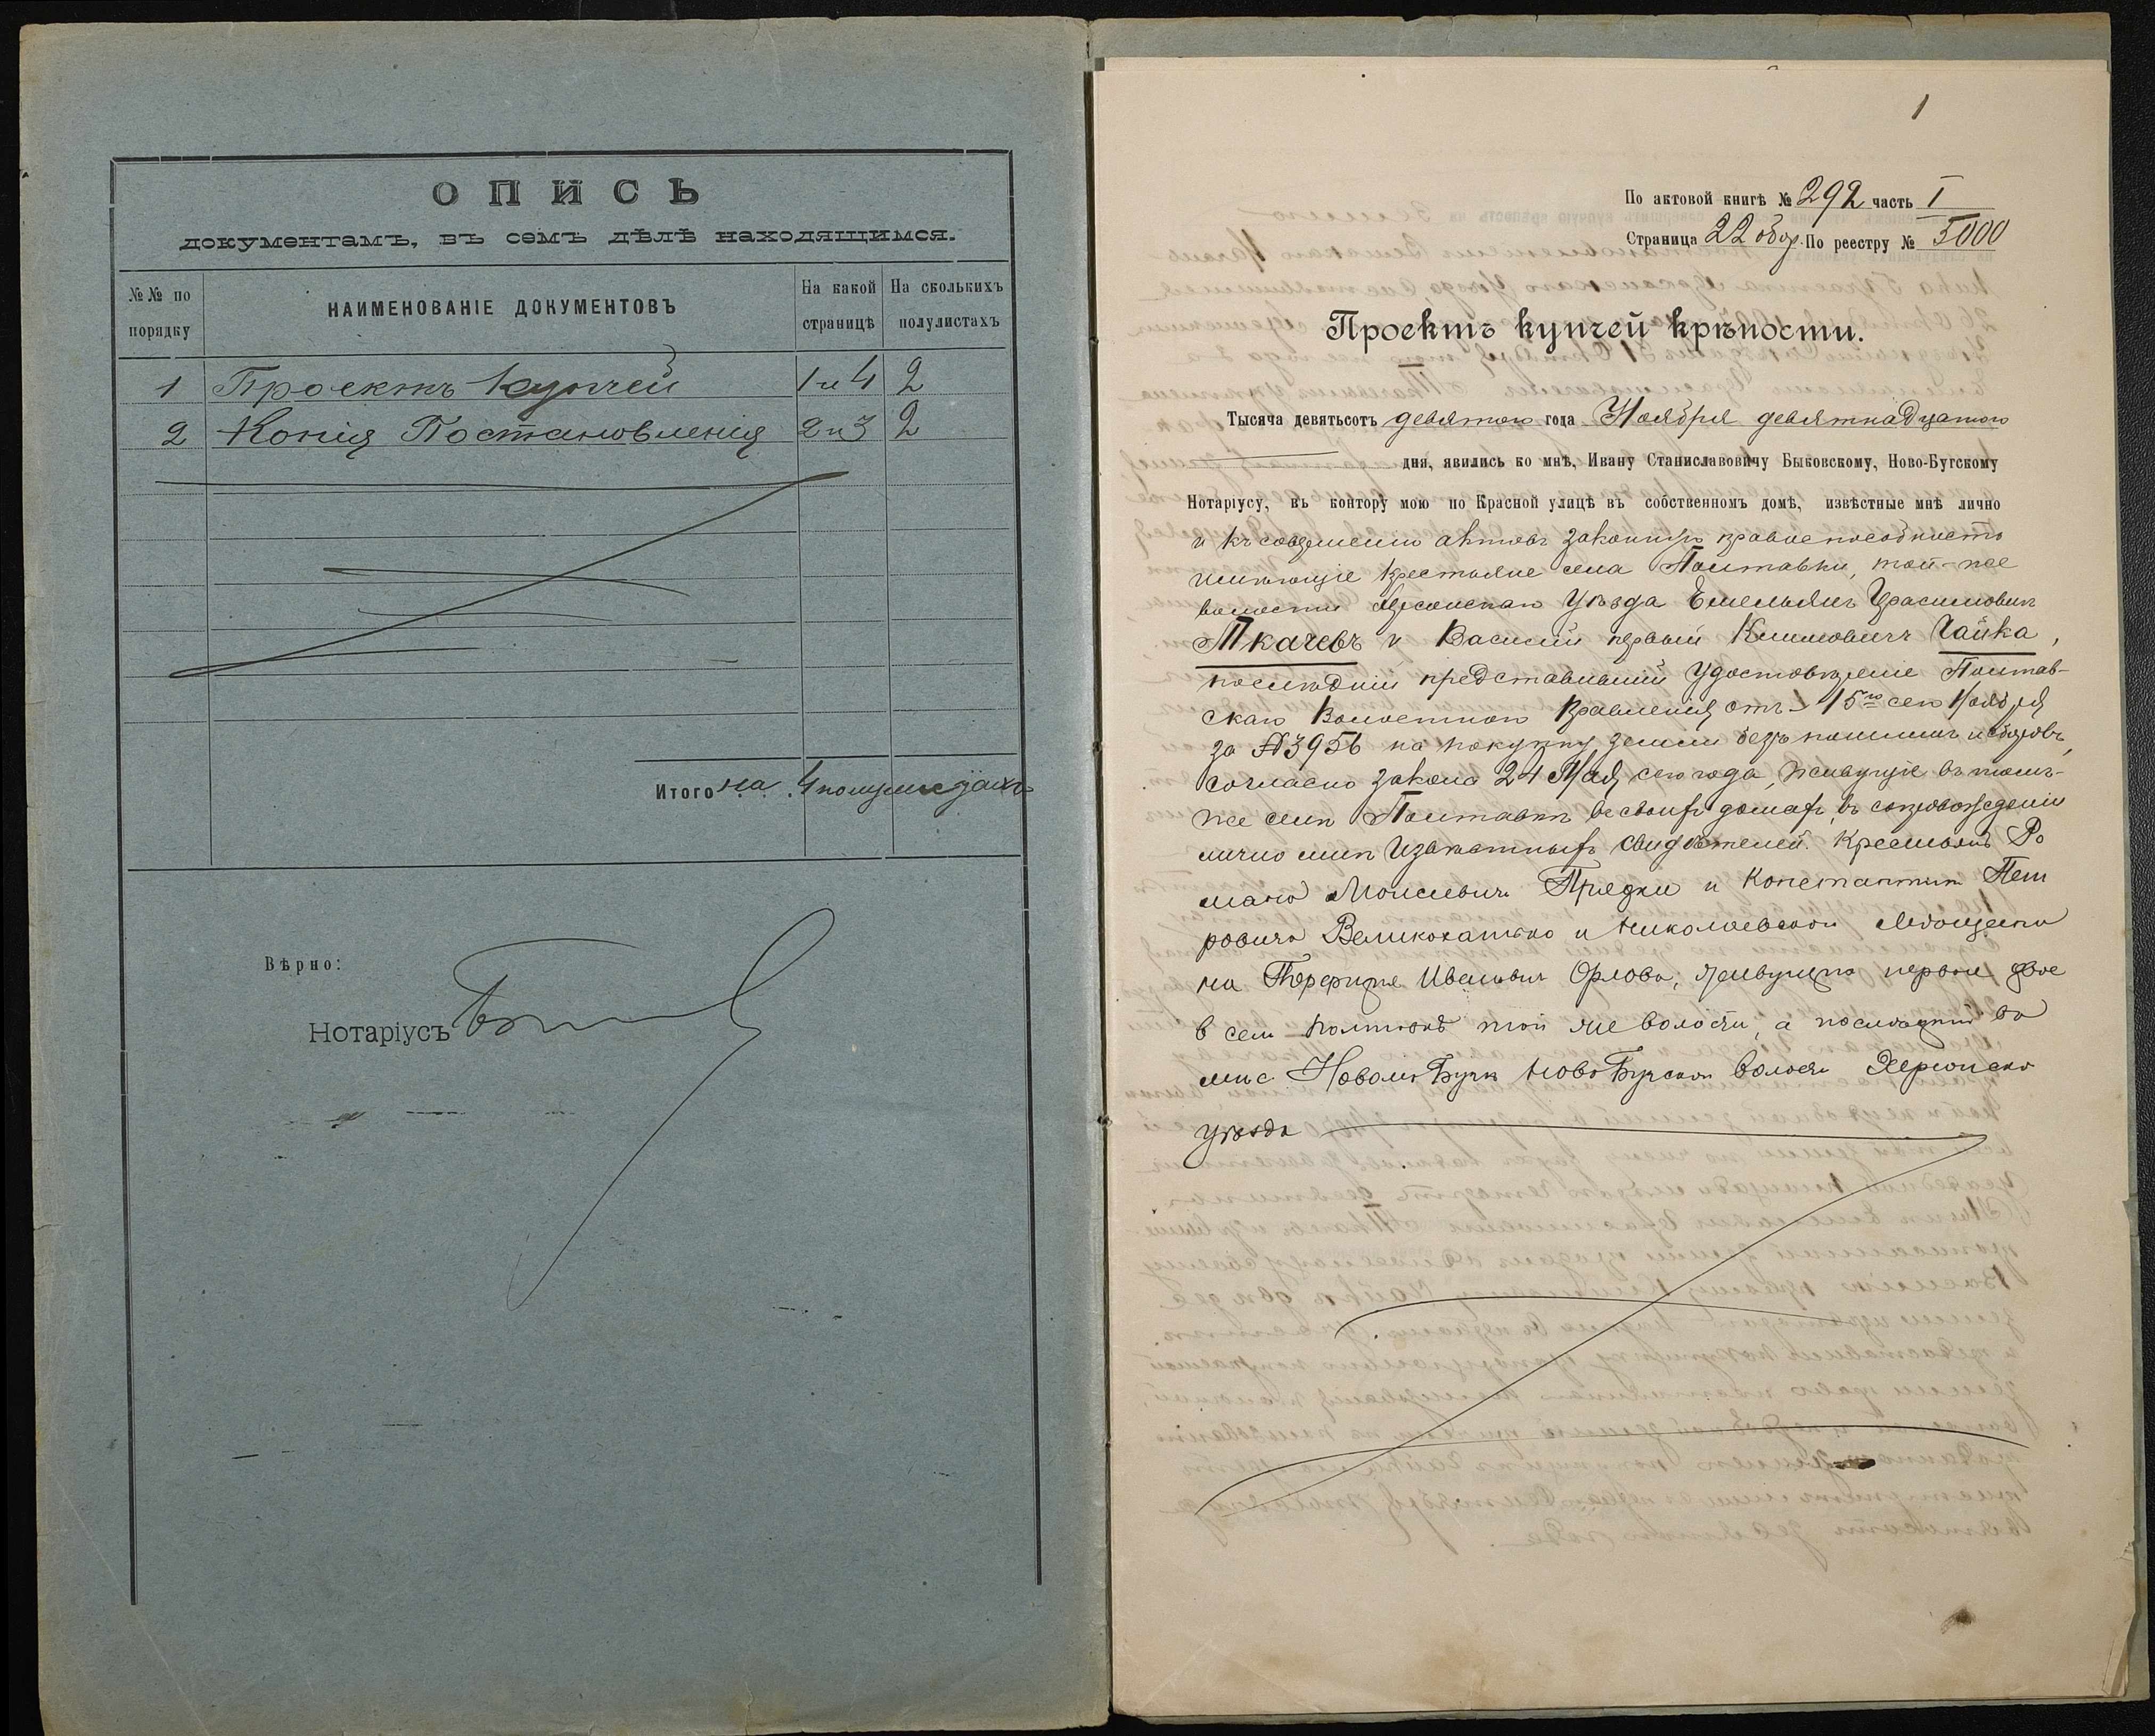 ОПИСЬ
документамъ, въ семъ дѣлѣ находящимся.
№№ по порядку
НАИМЕНОВАНІЕ ДОКУМЕНТОВЪ
На какой страницѣ
На сколькихъ полулистахъ
1 Проектъ купчей 1 и 4 2
2 Копія Постановленія 2 и 3 2
Итого на 4 полулистахъ
Вѣрно:
Нотаріусъ
1
По актовой книгѣ № 292 часть I
Страница 22 обор. По реестру № 5000
Проектъ купчей крѣпости.
Тысяча девятьсотъ девятаго года Ноября девятнадцатаго
дня, явились ко мнѣ, Ивану Станиславовичу Быковскому, Ново-Бугскому
Нотаріусу, въ контору мою по Красной улицѣ въ собственномъ домѣ, извѣстные мнѣ лично
и къ совершенію актовъ законную правоспособность
имѣющіе крестьяне села Полтавки, той-же
волости Херсонскаго уѣзда Емельянъ Герасимовичъ
Ткачевъ и Василій первый Климовичъ Чайка,
послѣдній представившій удостовѣреніе Полтав-
скаго Волостного Правленія отъ 15го сего Ноября
за №3956 на покупку земли безъ пошлинъ и сборовъ,
согласно закона 24 Мая сего года, живущіе въ томъ-
же селѣ Полтавкѣ въ своихъ домахъ, въ сопровожденіи
лично мнѣ извѣстныхъ свидѣтелей: крестьянъ Ро
мана Моисеевича Прядки и Константина Пет
ровича Великохатько и Николаевского мѣщани
на Ивановича Орлова, живущихъ первые двое
въ селѣ Полтавкѣ той же волости, а послѣдній въ
мѣс. Новомъ Бугѣ Ново Бугской волости Херсонскаго
уѣзда